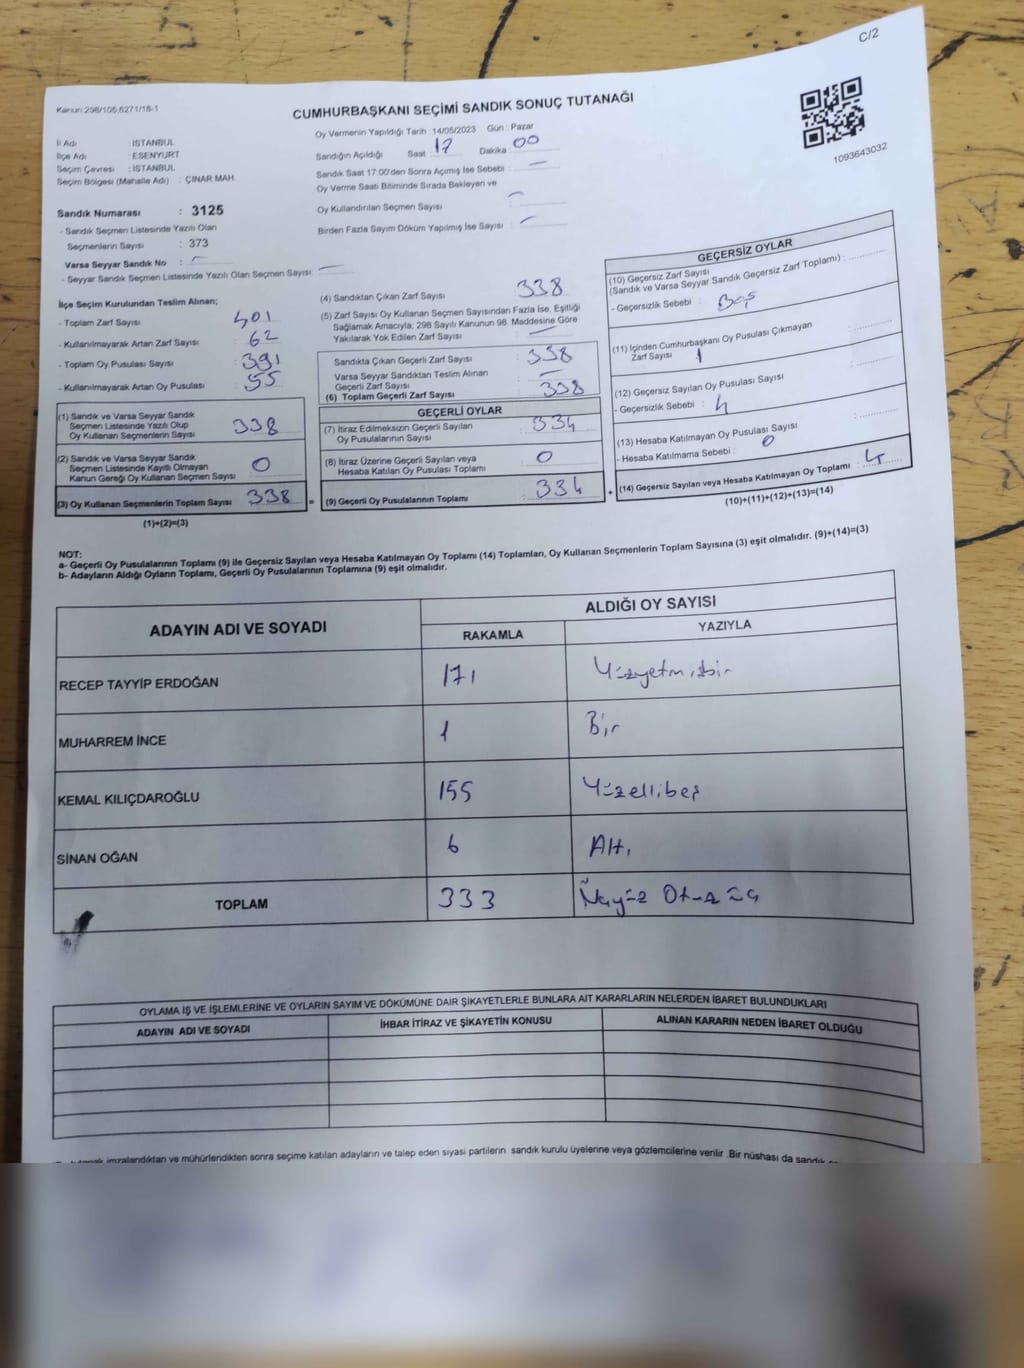 C/2
Kanun:298/105,6271/18-1
CUMHURBAŞKANI SEÇİMİ SANDIK SONUÇ TUTANAĞI
1093643032
İl Adı : İSTANBUL
İlçe Adı : ESENYURT
Seçim Çevresi : İSTANBUL
Seçim Bölgesi (Mahalle Adı) : ÇINAR MAH.
Sandık Numarası : 3125
- Sandık Seçmen Listesinde Yazılı Olan
Seçmenlerin Sayısı : 373
Varsa Seyyar Sandık No : -
- Seyyar Sandık Seçmen Listesinde Yazılı Olan Seçmen Sayısı: -
Oy Vermenin Yapıldığı Tarih : 14/05/2023 Gün : Pazar
Sandığın Açıldığı Saat : 17 Dakika : 00
Sandık Saat 17:00'den Sonra Açımış İse Sebebi : -
Oy Verme Saati Bitiminde Sırada Bekleyen ve
Oy Kullandırılan Seçmen Sayısı : -
Birden Fazla Sayım Döküm Yapılmış İse Sayısı : -
İlçe Seçim Kurulundan Teslim Alınan;
- Toplam Zarf Sayısı : 401
- Kullanılmayarak Artan Zarf Sayısı : 62
- Toplam Oy Pusulası Sayısı : 391
- Kullanılmayarak Artan Oy Pusulası : 55
(1) Sandık ve Varsa Seyyar Sandık
Seçmen Listesinde Yazılı Olup
Oy Kullanan Seçmenlerin Sayısı 338
(2) Sandık ve Varsa Seyyar Sandık
Seçmen Listesinde Kayıtlı Olmayan
Kanun Gereği Oy Kullanan Seçmen Sayısı 0
(3) Oy Kullanan Seçmenlerin Toplam Sayısı 338 =
(1)+(2)=(3)
(4) Sandıktan Çıkan Zarf Sayısı : 338
(5) Zarf Sayısı Oy Kullanan Seçmen Sayısından Fazla İse, Eşitliği
Sağlamak Amacıyla; 298 Sayılı Kanunun 98. Maddesine Göre
Yakılarak Yok Edilen Zarf Sayısı : -
Sandıkta Çıkan Geçerli Zarf Sayısı : 338
Varsa Seyyar Sandıktan Teslim Alınan
Geçerli Zarf Sayısı : -
(6) Toplam Geçerli Zarf Sayısı : 338
GEÇERLİ OYLAR
(7) İtiraz Edilmeksizin Geçerli Sayılan
Oy Pusulalarının Sayısı : 334
(8) İtiraz Üzerine Geçerli Sayılan veya
Hesaba Katılan Oy Pusulası Toplamı : 0
(9) Geçerli Oy Pusulalarının Toplamı : 334 +
GEÇERSİZ OYLAR
(10) Geçersiz Zarf Sayısı
(Sandık ve Varsa Seyyar Sandık Geçersiz Zarf Toplamı) :
- Geçersizlik Sebebi : Boş
(11) İçinden Cumhurbaşkanı Oy Pusulası Çıkmayan
Zarf Sayısı 1 :
(12) Geçersiz Sayılan Oy Pusulası Sayısı :
- Geçersizlik Sebebi : 4
(13) Hesaba Katılmayan Oy Pusulası Sayısı :
- Hesaba Katılmama Sebebi : 0
(14) Geçersiz Sayılan veya Hesaba Katılmayan Oy Toplamı : 4
(10)+(11)+(12)+(13)=(14)
NOT:
a- Geçerli Oy Pusulalarının Toplamı (9) ile Geçersiz Sayılan veya Hesaba Katılmayan Oy Toplamı (14) Toplamları, Oy Kullanan Seçmenlerin Toplam Sayısına (3) eşit olmalıdır. (9)+(14)=(3)
b- Adayların Aldığı Oyların Toplamı, Geçerli Oy Pusulalarının Toplamına (9) eşit olmalıdır.
ADAYIN ADI VE SOYADI
ALDIĞI OY SAYISI
RAKAMLA YAZIYLA
RECEP TAYYİP ERDOĞAN 171 Yüzyetmişbir
MUHARREM İNCE 1 Bir
KEMAL KILIÇDAROĞLU 155 Yüzellibeş
SİNAN OĞAN 6 Altı
TOPLAM 333 Üçyüz Otuz üç
OYLAMA İŞ VE İŞLEMLERİNE VE OYLARIN SAYIM VE DÖKÜMÜNE DAİR ŞİKAYETLERLE BUNLARA AİT KARARLARIN NELERDEN İBARET BULUNDUKLARI
ADAYIN ADI VE SOYADI İHBAR İTİRAZ VE ŞİKAYETİN KONUSU ALINAN KARARIN NEDEN İBARET OLDUĞU
tutanak imzalandıktan ve mühürlendikten sonra seçime katılan adayların ve talep eden siyasi partilerin sandık kurulu üyelerine veya gözlemcilerine verilir. Bir nüshası da sandık